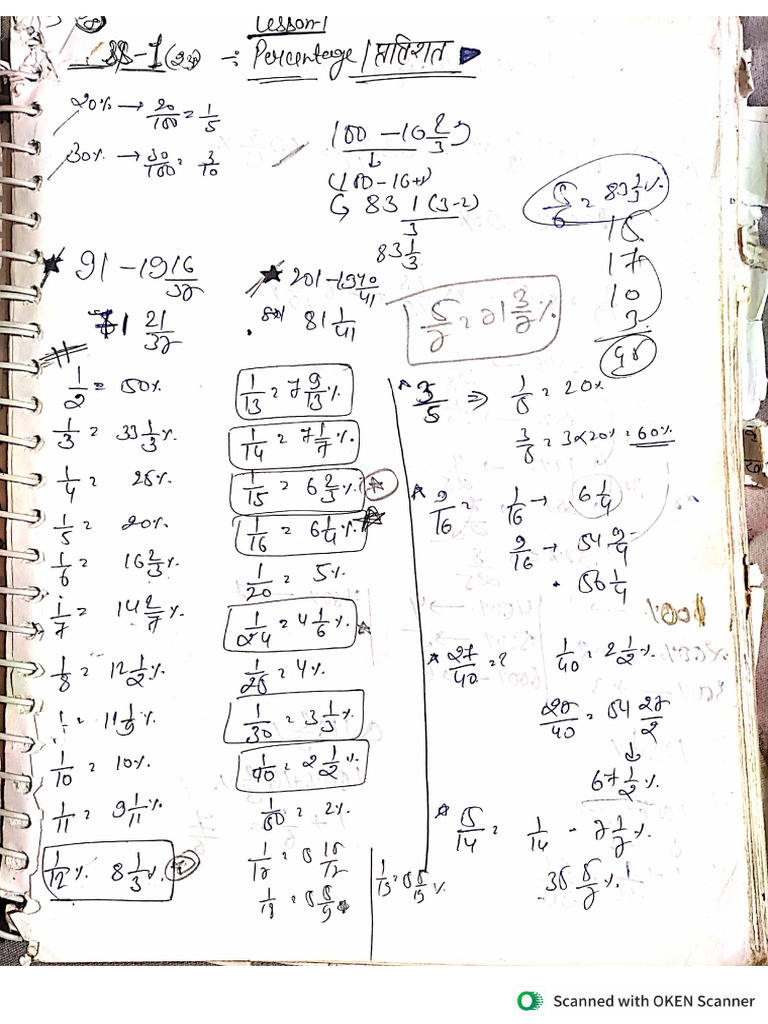 Lesson-1
SS-1(23) ÷ Percentage / प्रतिशत
20% → 20/100 = 1/5
30% → 30/100 = 3/10
100 - 16 2/3
83 1(3-2)/3
83 1/3
5/6 = 83 1/3 %
15
17
10
3
91 - 19 16/37
21/37
201 - 19 40/41
81 1/41
5/7 = 71 3/7 %
1/2 = 50%
1/3 = 33 1/3 %
1/4 = 25%
1/5 = 20%
1/6 = 16 2/3 %
1/7 = 14 2/7 %
1/8 = 12 1/2 %
11 1/9 %
1/10 = 10%
1/11 = 9 1/11 %
1/12 % 8 1/3 %
1/13 = 7 9/13 %
1/14 = 7 1/7 %
1/15 = 6 2/3 %
1/16 = 6 1/4 %
1/20 = 5%
1/24 = 4 1/6 %
1/25 = 4%
1/30 = 3 1/3 %
1/40 = 2 1/2 %
1/50 = 2%
3/5 ⇒ 1/5 = 20%
3/5 = 3×20% = 60%
9/16 = 1/16 → 6 1/4
9/16 → 54 9/4
56 1/4
27/40 = ? 1/40 = 2 1/2 %
27/40 = 54 27/2
↓
67 1/2 %
5/14 = 1/14 - 7 1/7 %
35 5/7 %
Scanned with OKEN Scanner